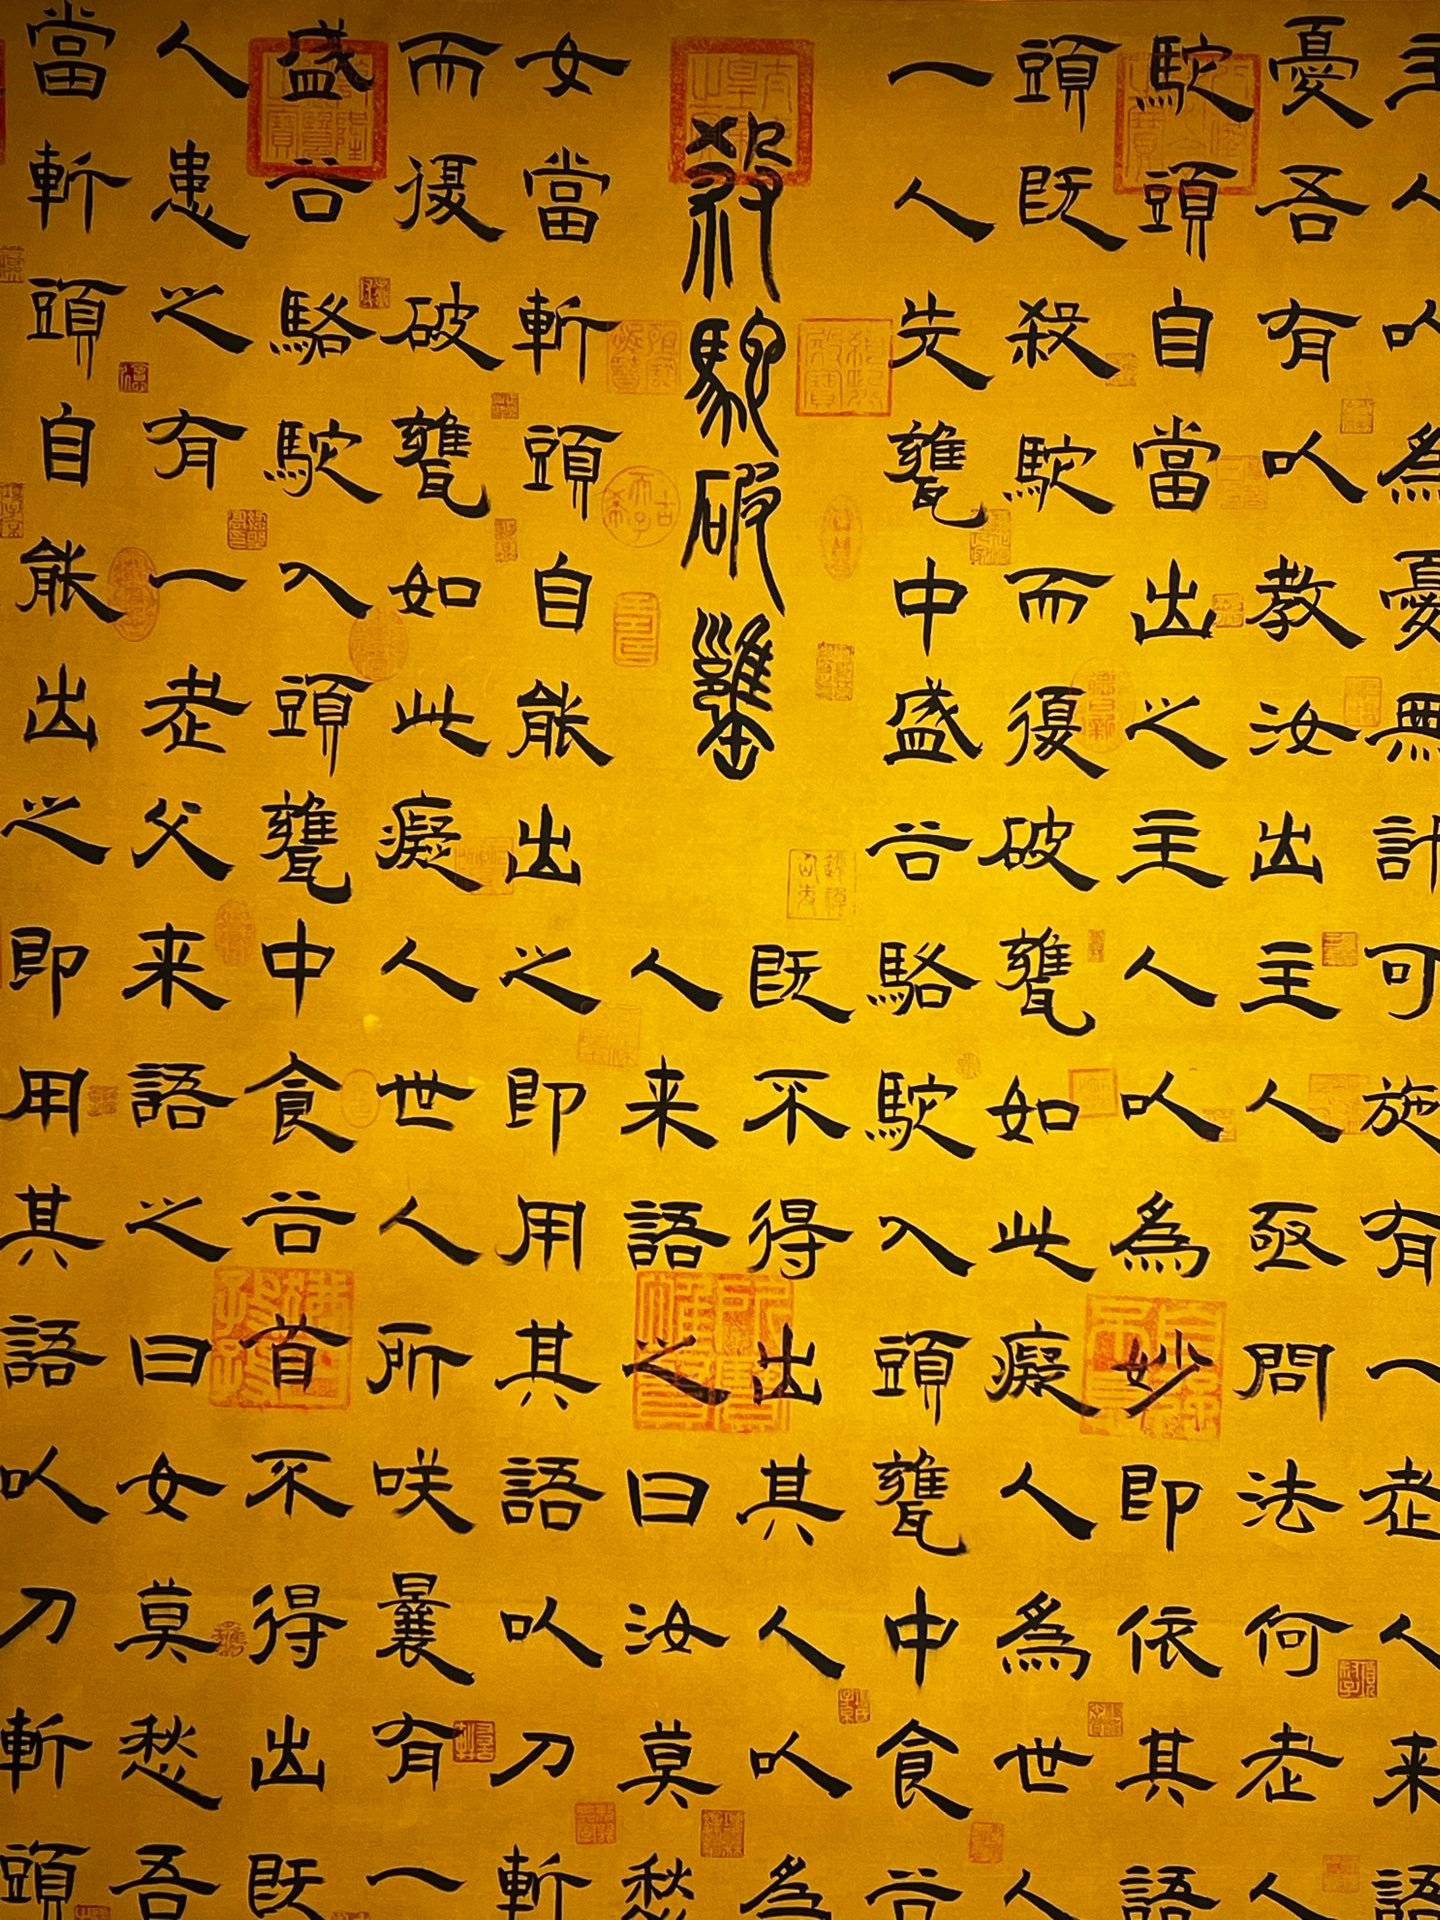 殺駝破甕
主人以為憂無計可施有一老人来語
憂吾有以教汝出主人亟問法何老人
駝頭自當出之主人以為妙即依其語
頭既殺駝而復破甕如此癡人為世人
一人先甕中盛谷駱駝入頭甕中食谷
既不得出其人以為
人来語之曰汝莫愁
女當斬頭自能出之即用其語以刀斬
而復破甕如此癡人世人所咲曩有一
盛谷駱駝入頭甕中食谷首不得出既
人患之有一老父来語之曰女莫愁吾
當斬頭自能出之即用其語以刀斬頭